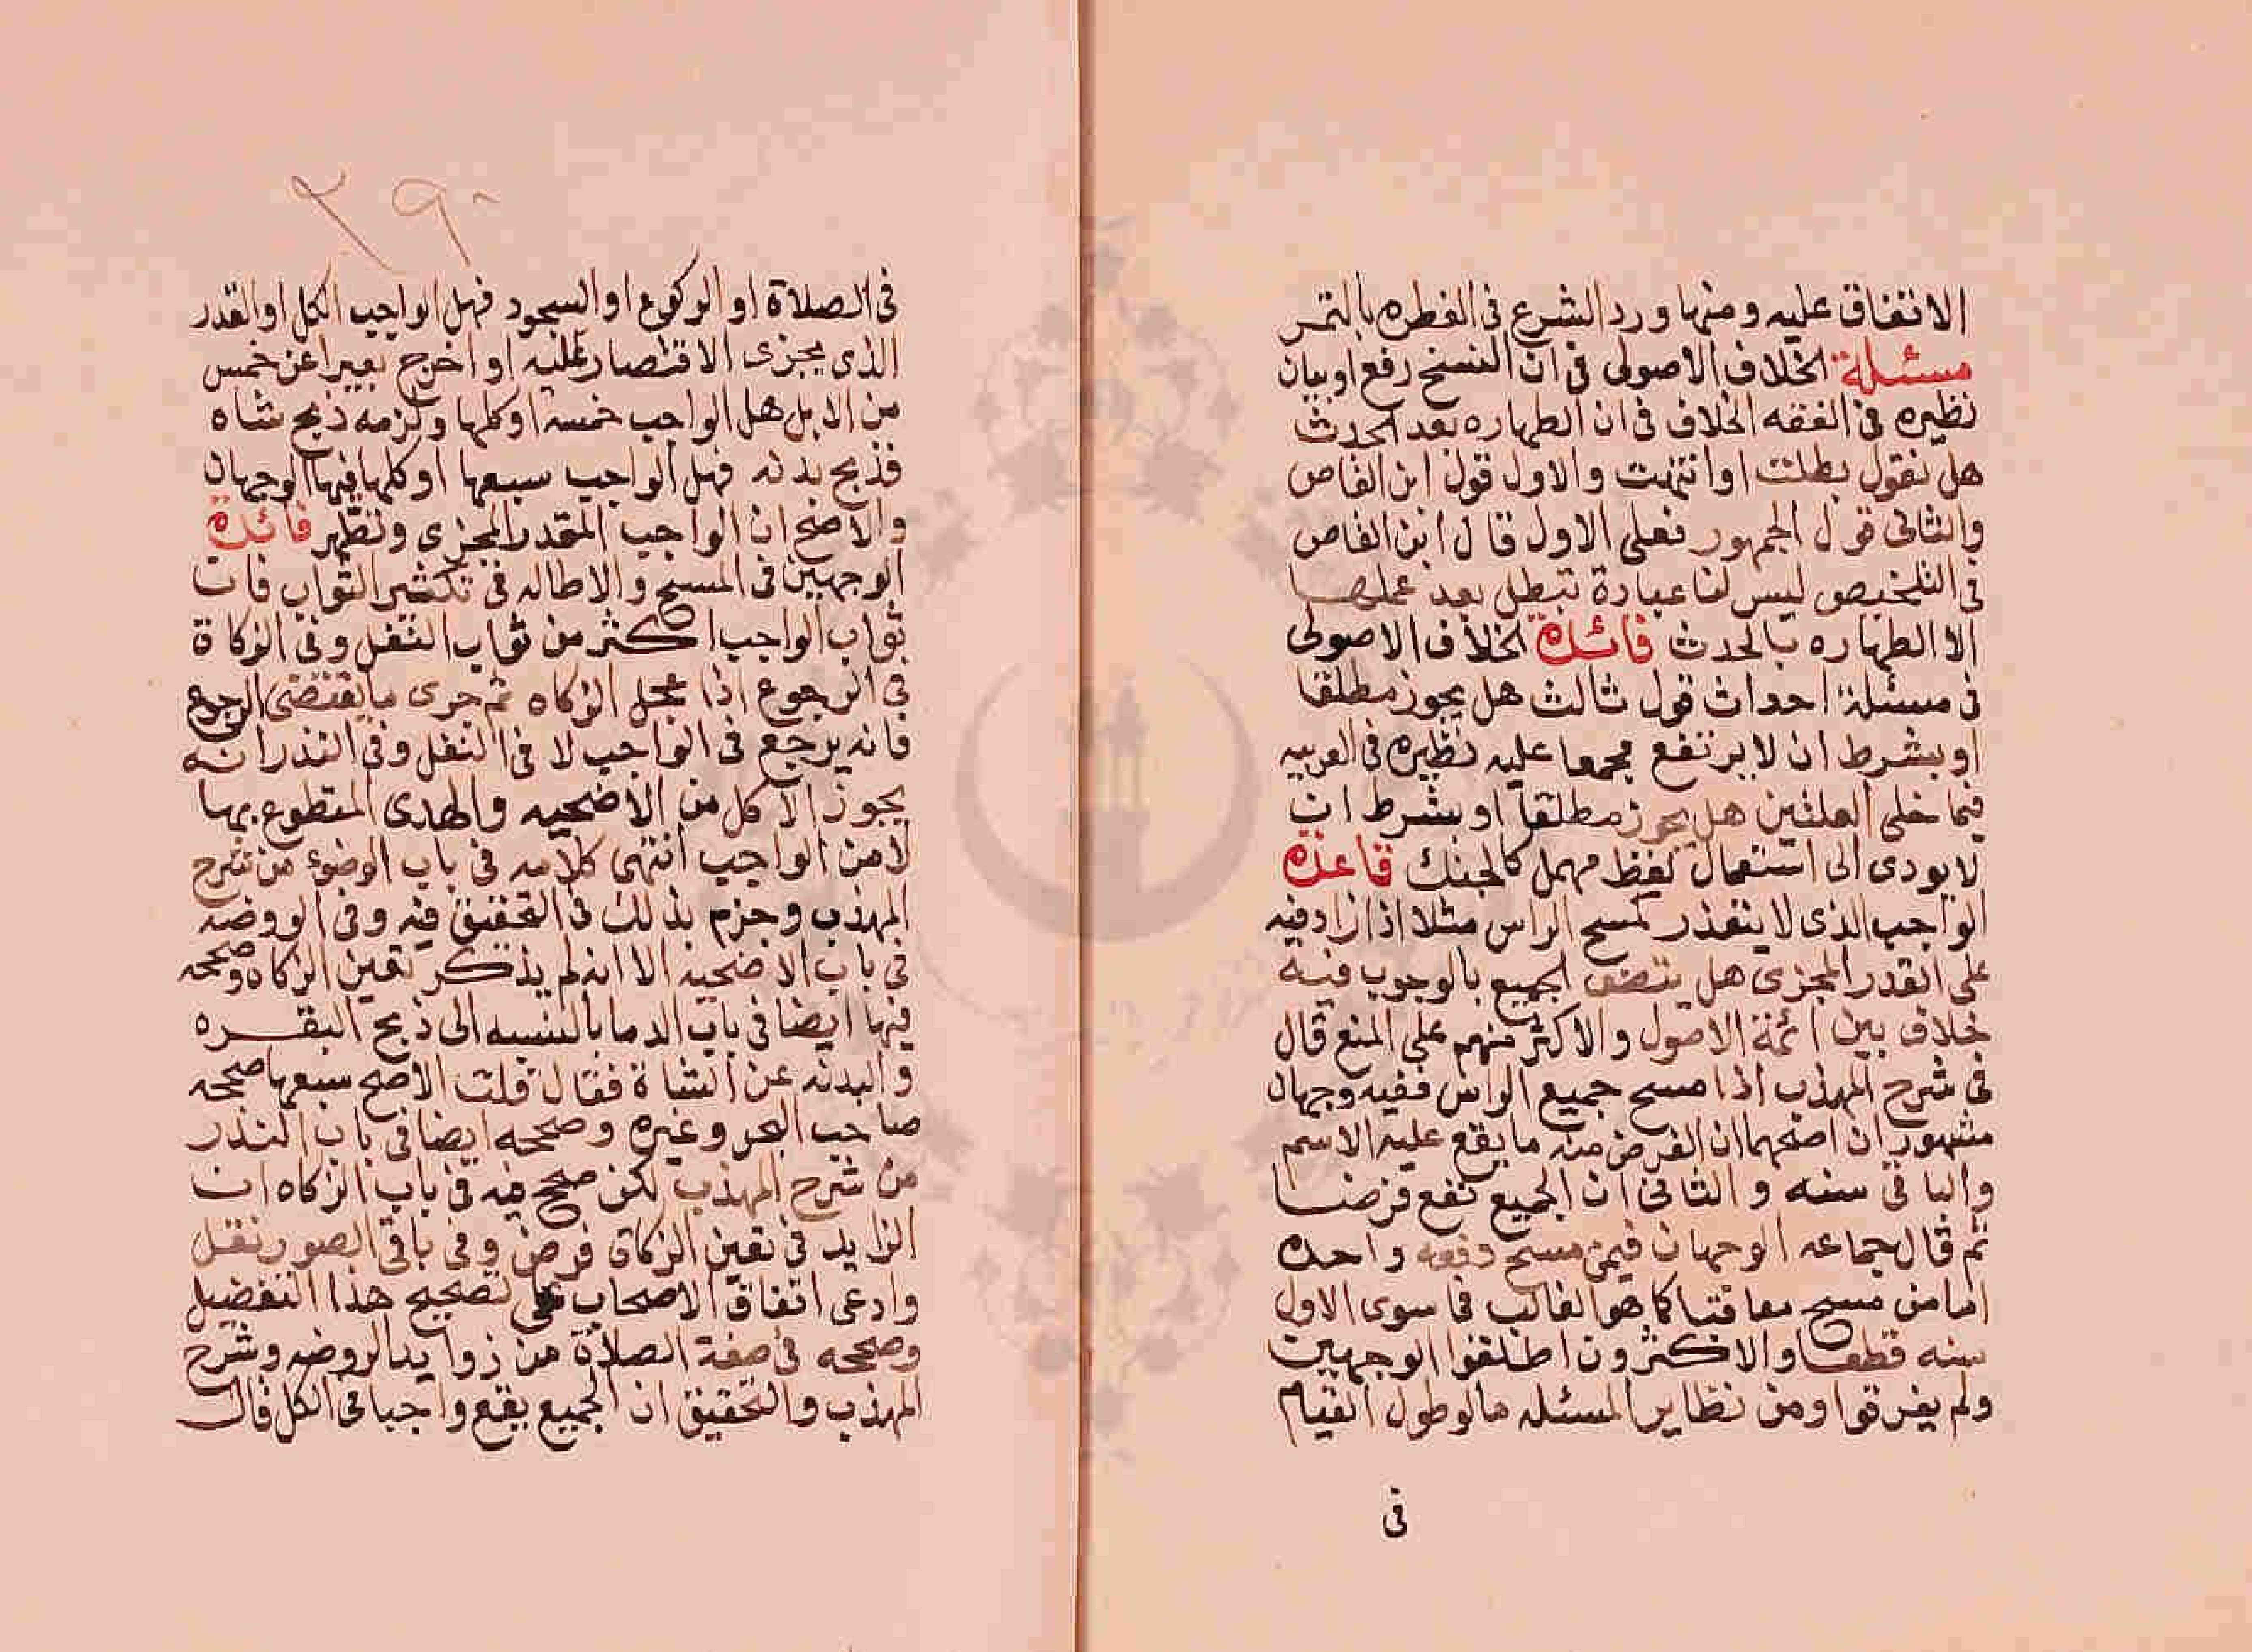 الاتفاق عليه ومنها ورد الشرع فى الفطره بالتمر
مسئلة الخلاف الاصولى فى ان النسخ رفع او بيان
نظيره فى الفقه الخلاف فى ان الطهاره بعد الحدث
هل نقول بطلت او انتهت والاول قول ابن القاص
والثانى قول الجمهور فعلى الاول قال ابن القاص
فى التلخيص ليس لنا عبادة تبطل بعد عملها
الا الطهاره بالحدث فائدة الخلاف الاصولى
فى مسئلة احداث قول ثالث هل يجوز مطلقا
او بشرط ان لا يرتفع مجمعا عليه نظيره فى العربيه
فيما خلى العلتين هل يجوز مطلقا او بشرط ان
لا يودى الى استعمال لفظ مهمل كالجنك قاعدة
الواجب الذى لا يتقدر كمسح الراس مثلا اذا زاد فيه
على القدر المجزى هل يتصف الجميع بالوجوب فيه
خلاف بين ائمة الاصول والاكثر منهم على المنع قال
فى شرح المهذب اذا مسح جميع الراس ففيه وجهان
مشهوران اصحهما ان الفرض منه ما يقع عليه الاسم
والباقى سنه والثانى ان الجميع تقع فرضا
ثم قال جماعه الوجهان فيمن مسح دفعه واحده
اما من مسح معاقبا كما هو الغالب فما سوى الاول
سنه قطعا والاكثرون اطلقوا الوجهين
ولم يفرقوا ومن نظاير المسئله ما لو طول القيام
فى
٢٩٠
فى الصلاة او الركوع او السجود فهل الواجب الكل او القدر
الذى يجزى الاقتصار عليه او اخرج بعيرا عن خمس
من الابل هل الواجب خمسه او كلها ولزمه ذبح شاه
فذبح بدنه فهل الواجب سبعها او كلها فيها الوجهان
والاصح ان الواجب القدر المجزى وتظهر فائدة
الوجهين فى المسح والاطاله فى تكثير الثواب فان
ثواب الواجب اكثر من ثواب النفل وفى الزكاة
فى الرجوع اذا عجل الزكاه ثم جرى ما يقتضى الرجوع
فانه يرجع فى الواجب لا فى النفل وفى النذر انه
يجوز الاكل من الاضحيه والهدى المتطوع بها
لا من الواجب انتهى كلامه فى باب الوضوء من شرح
المهذب وجزم بذلك فى التحقيق فيه وفى الروضه
فى باب الاضحيه الا انه لم يذكر بعير الزكاه وصححه
فيها ايضا فى باب الدما بالنسبه الى ذبح البقره
والبدنه عن الشاة فقال قلت الاصح سبعها صححه
صاحب البحر وغيره وصححه ايضا فى باب النذر
من شرح المهذب لكن صحح فيه فى باب الزكاه ان
الزايد فى بعير الزكاة فرض وفى باقى الصور نفل
وادعى اتفاق الاصحاب على تصحيح هذا التفصيل
وصححه فى صفة الصلاة من زوايد الروضه وشرح
المهذب والتحقيق ان الجميع يقع واجبا فى الكل قال